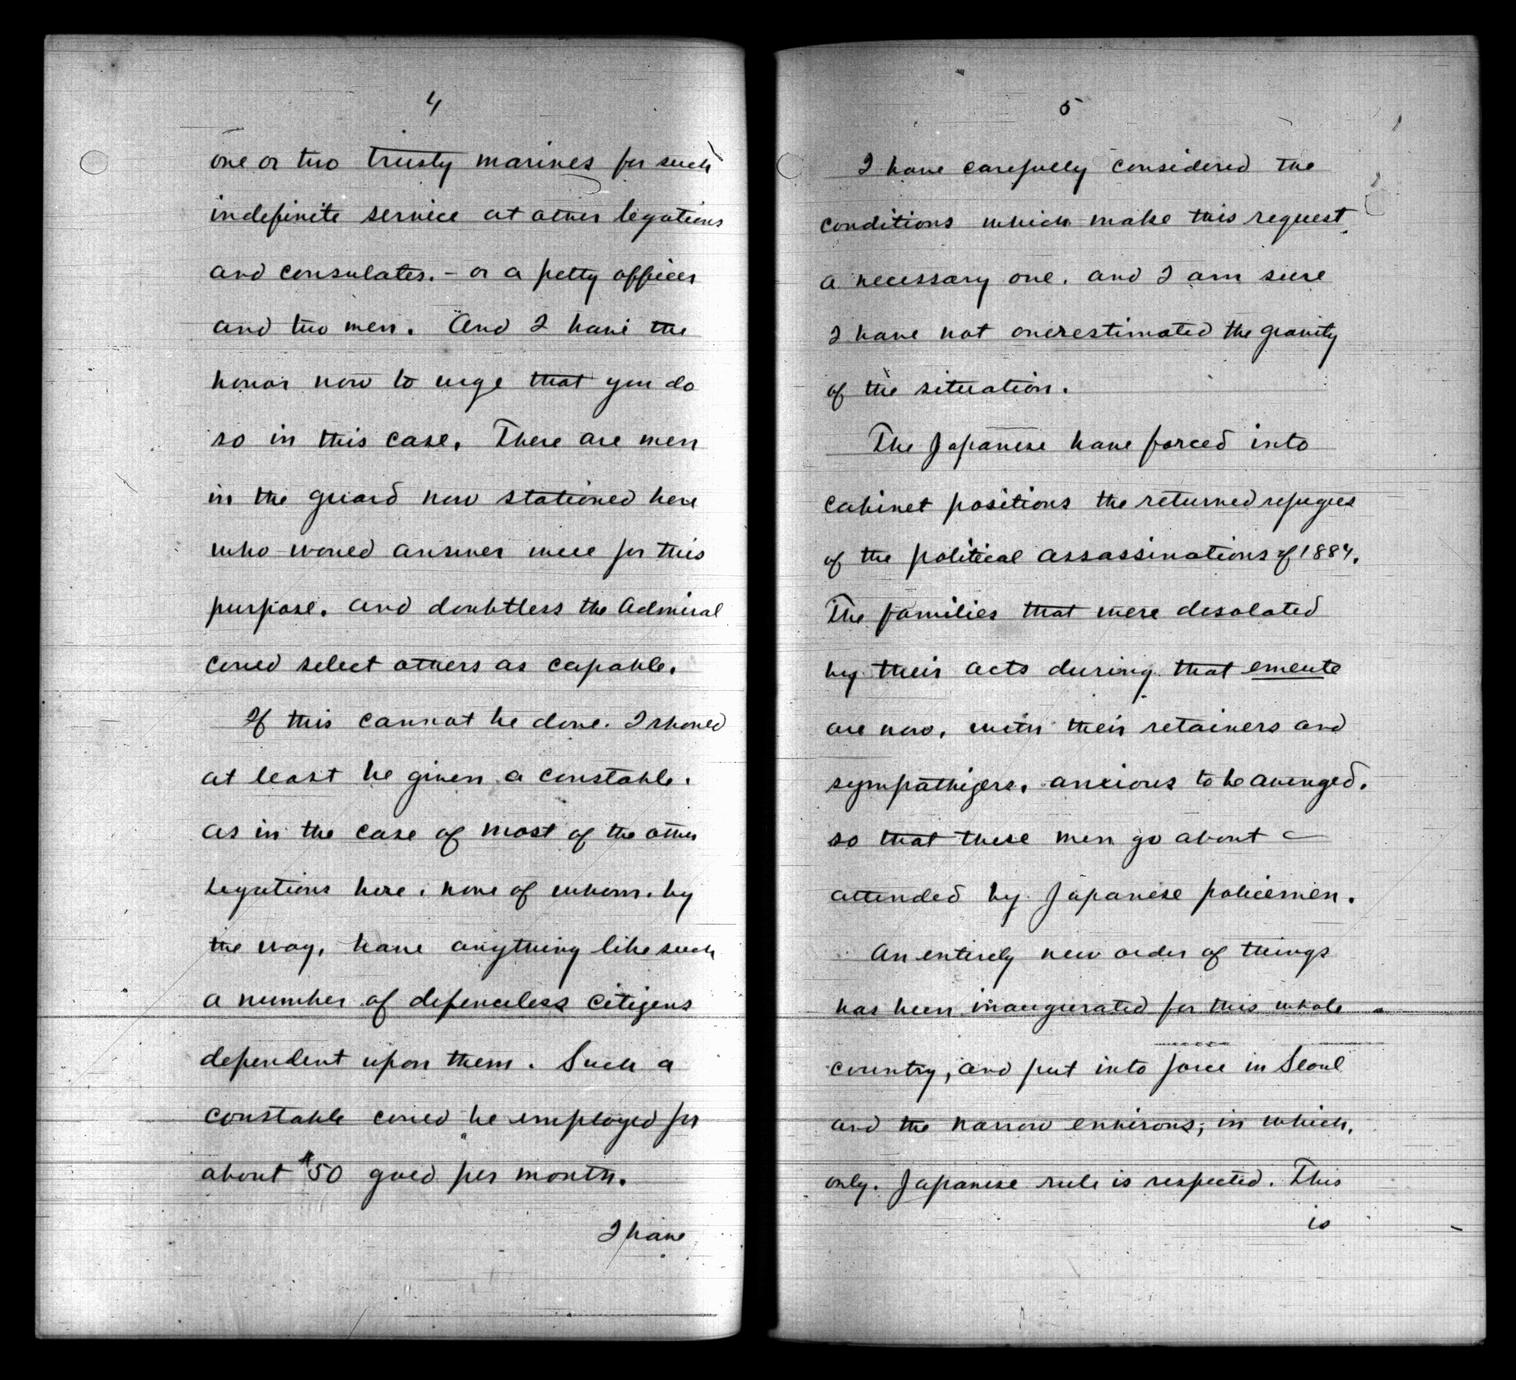 4
one or two trusty marines for such
indefinite service at other legations
and consulates. - or a petty officer
and two men. And I have the
honor now to urge that you do
so in this case. There are men
in the guard now stationed here
who would answer well for this
purpose. and doubtless the Admiral
could select others as capable.
If this cannot be done. I should
at least be given a constable.
as in the case of most of the other
Legations here. none of whom. by
the way, have anything like such
a number of defenceless citizens
dependent upon them. Such a
constable could be employed for
about $50 gold per month.
I have
5
I have carefully considered the
conditions which make this request
a necessary one. and I am sure
I have not overestimated the gravity
of the situation.
The Japanese have forced into
cabinet positions the returned refugees
of the political assassinations of 1884.
The families that were desolated
by their acts during that emeute
are now, with their retainers and
sympathizers, anxious to be avenged.
so that these men go about
attended by Japanese policemen.
An entirely new order of things
has been inaugurated for this whole
country, and put into force in Seoul
and the narrow environs; in which,
only. Japanese rule is respected. This
is